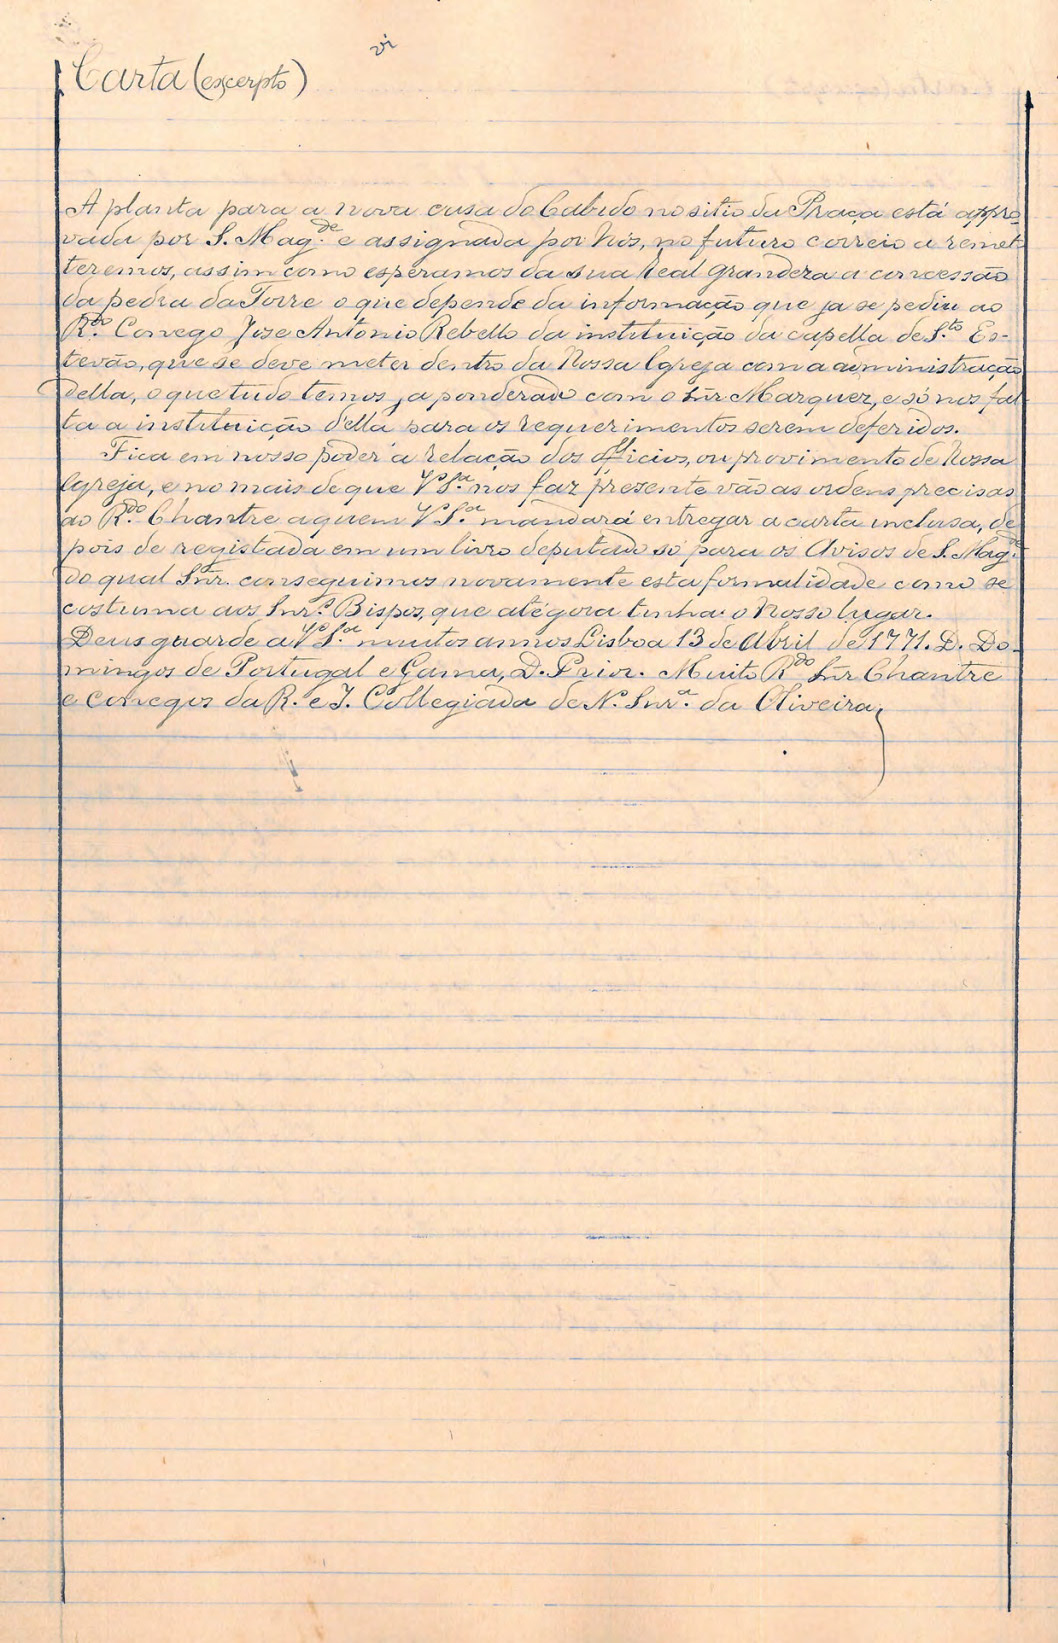 vi
Carta (excerpto)
A planta para a nova casa do Cabido no sitio da Praça está appro-
vada por S. Mag.de e assignada por Nós, no futuro correio a remet-
teremos, assim como esperamos da sua Real grandeza a concessão
da pedra da Torre o que depende da informação que ja se pediu ao
R.do Conego Jose Antonio Rebello da instituição da capella de S.to Es-
tevão, que se deve meter dentro da Nossa Igreja com a administração
della, o que tudo temos ja ponderado com o Snr Marquez, e só nos fal-
ta a instituição della para os requerimentos serem deferidos.
Fica em nosso poder a relação dos officios, ou provimento de Nossa
Igreja, e no mais de que V.S.a nos faz presente vão as ordens precisas
ao R.do Chantre a quem V.S.a mandará entregar a carta inclusa, de-
pois de registada em um livro deputado só para os Avisos de S. Mag.de
do qual Snr. conseguimos novamente esta formalidade como se
costuma aos Snr.s Bispos, que atégora tinha o Nosso lugar.
Deus guarde a V.S.a muitos annos Lisboa 13 de Abril de 1771. D. Do-
mingos de Portugal e Gama, D. Prior. Muito R.do Snr Chantre
e conegos da R. e I. Collegiada de N. Snr.a da Oliveira